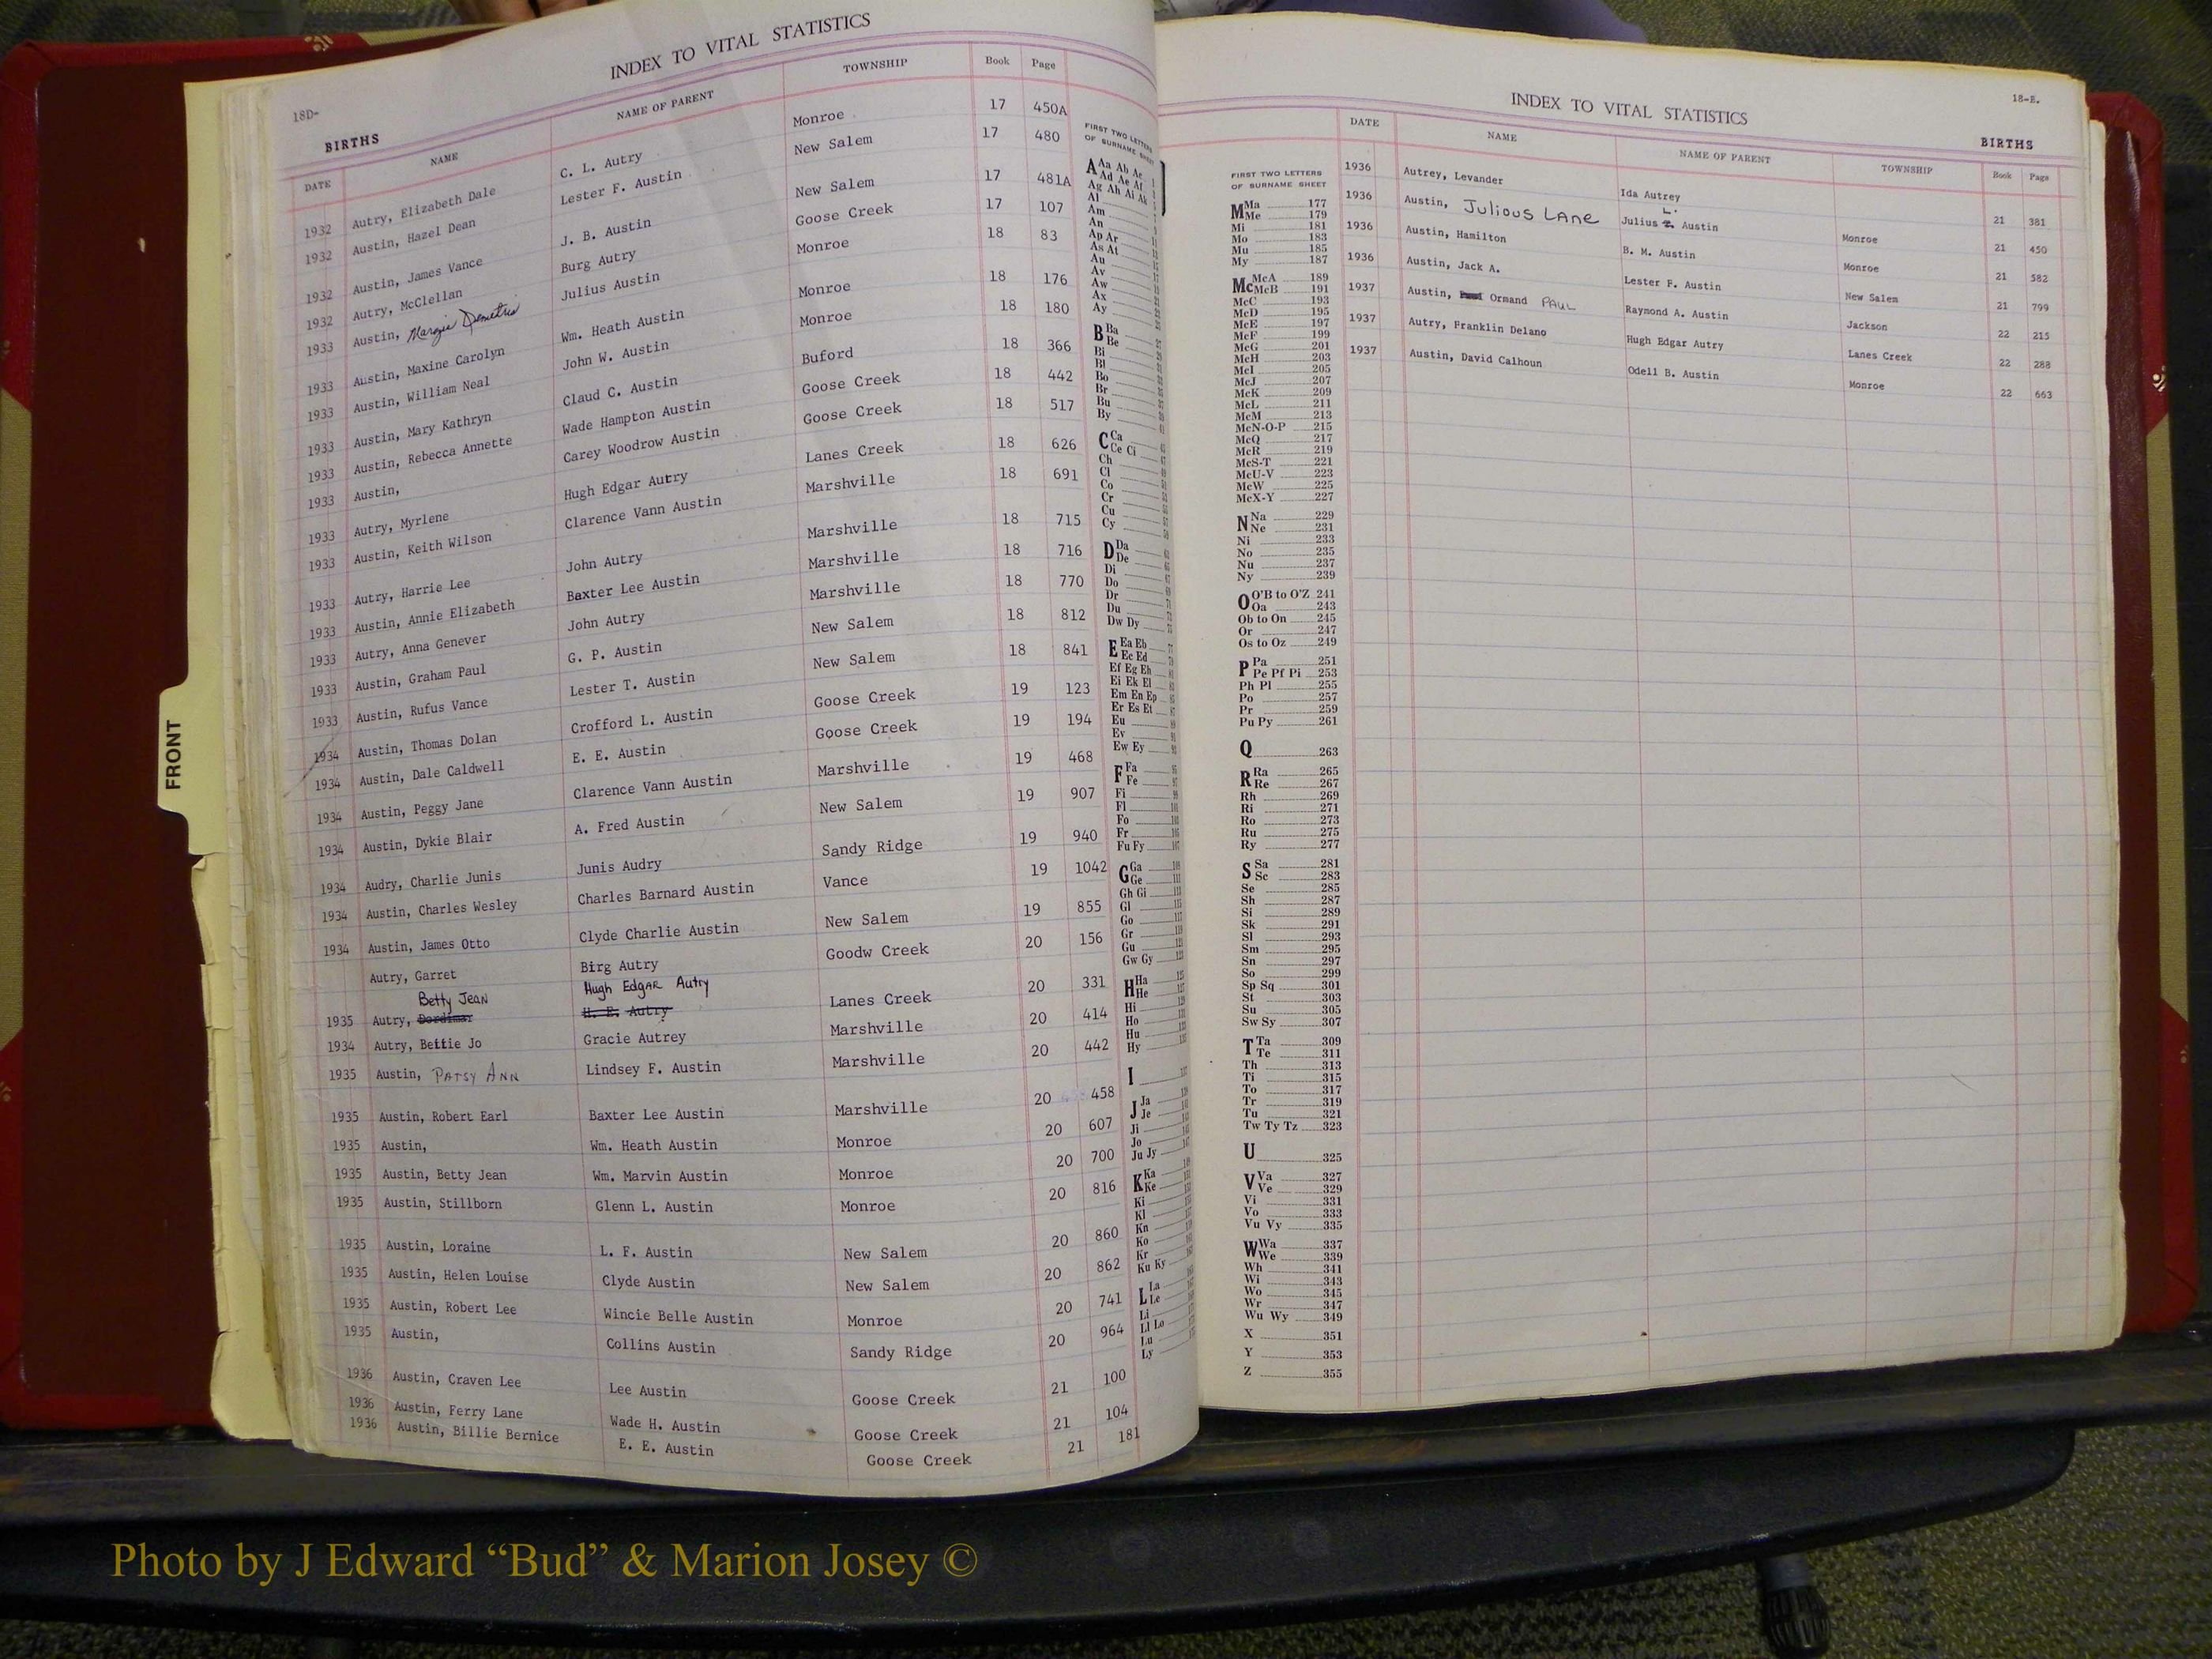 INDEX TO VITAL STATISTICS
18D-
BIRTHS
DATE NAME NAME OF PARENT TOWNSHIP Book Page
1932 Autry, Elizabeth Dale C. L. Autry Monroe 17 450A
1932 Austin, Hazel Dean Lester F. Austin New Salem 17 480
1932 Austin, James Vance J. B. Austin New Salem 17 481A
1932 Autry, McClellan Burg Autry Goose Creek 17 107
1933 Austin, Margie Demetris Julius Austin Monroe 18 83
1933 Austin, Maxine Carolyn Wm. Heath Austin Monroe 18 176
1933 Austin, William Neal John W. Austin Monroe 18 180
1933 Austin, Mary Kathryn Claud C. Austin Buford 18 366
1933 Austin, Rebecca Annette Wade Hampton Austin Goose Creek 18 442
1933 Austin, Carey Woodrow Austin Goose Creek 18 517
1933 Autry, Myrlene Hugh Edgar Autry Lanes Creek 18 626
1933 Austin, Keith Wilson Clarence Vann Austin Marshville 18 691
1933 Autry, Harrie Lee John Autry Marshville 18 715
1933 Austin, Annie Elizabeth Baxter Lee Austin Marshville 18 716
1933 Autry, Anna Genever John Autry Marshville 18 770
1933 Austin, Graham Paul G. P. Austin New Salem 18 812
1933 Austin, Rufus Vance Lester T. Austin New Salem 18 841
1934 Austin, Thomas Dolan Crofford L. Austin Goose Creek 19 123
1934 Austin, Dale Caldwell E. E. Austin Goose Creek 19 194
1934 Austin, Peggy Jane Clarence Vann Austin Marshville 19 468
1934 Austin, Dykie Blair A. Fred Austin New Salem 19 907
1934 Audry, Charlie Junis Junis Audry Sandy Ridge 19 940
1934 Austin, Charles Wesley Charles Barnard Austin Vance 19 1042
1934 Austin, James Otto Clyde Charlie Austin New Salem 19 855
Autry, Garret Birg Autry Goodw Creek 20 156
Betty Jean Hugh Edgar Autry
1935 Autry, H. E. Autry Lanes Creek 20 331
1934 Autry, Bettie Jo Gracie Autrey Marshville 20 414
1935 Austin, Patsy Ann Lindsey F. Austin Marshville 20 442
1935 Austin, Robert Earl Baxter Lee Austin Marshville 20 458
1935 Austin, Wm. Heath Austin Monroe 20 607
1935 Austin, Betty Jean Wm. Marvin Austin Monroe 20 700
1935 Austin, Stillborn Glenn L. Austin Monroe 20 816
1935 Austin, Loraine L. F. Austin New Salem 20 860
1935 Austin, Helen Louise Clyde Austin New Salem 20 862
1935 Austin, Robert Lee Wincie Belle Austin Monroe 20 741
1935 Austin, Collins Austin Sandy Ridge 20 964
1936 Austin, Craven Lee Lee Austin Goose Creek 21 100
1936 Austin, Ferry Lane Wade H. Austin Goose Creek 21 104
1936 Austin, Billie Bernice E. E. Austin Goose Creek 21 181
FIRST TWO LETTERS
OF SURNAME SHEET
A Aa Ab Ac
Ad Ae Af
Ag Ah Ai Ak
Al
Am
An
Ap Ar
As At
Au
Av
Aw
Ax
Ay
B Ba
Be
Bi
Bl
Bo
Br
Bu
By
C Ca
Ce Ci
Ch
Cl
Co
Cr
Cu
Cy
D Da
De
Di
Do
Dr
Du
Dw Dy
E Ea Eb
Ec Ed
Ef Eg Eh
Ei Ek El
Em En Ep
Er Es Et
Eu
Ev
Ew Ey
F Fa
Fe
Fi
Fl
Fo
Fr
Fu Fy
G Ga
Ge
Gh Gi
Gl
Go
Gr
Gu
Gw Gy
H Ha
He
Hi
Ho
Hu
Hy
I
J Ja
Je
Ji
Jo
Ju Jy
K Ka
Ke
Ki
Kl
Kn
Ko
Kr
Ku Ky
L La
Le
Li
Ll Lo
Lu
Ly
FRONT
INDEX TO VITAL STATISTICS
18-E.
BIRTHS
DATE NAME NAME OF PARENT TOWNSHIP Book Page
1936 Autrey, Levander Ida Autrey Monroe 21 381
1936 Austin, Julious Lane Julius L. Austin Monroe 21 450
1936 Austin, Hamilton B. M. Austin New Salem 21 582
1936 Austin, Jack A. Lester F. Austin Jackson 21 799
1937 Austin, Ormand Paul Raymond A. Austin Lanes Creek 22 215
1937 Autry, Franklin Delano Hugh Edgar Autry Monroe 22 288
1937 Austin, David Calhoun Odell B. Austin 22 663
FIRST TWO LETTERS
OF SURNAME SHEET
M Ma 177
Me 179
Mi 181
Mo 183
Mu 185
My 187
Mc McA 189
McB 191
McC 193
McD 195
McE 197
McF 199
McG 201
McH 203
McI 205
McJ 207
McK 209
McL 211
McM 213
McN-O-P 215
McQ 217
McR 219
McS-T 221
McU-V 223
McW 225
McX-Y 227
N Na 229
Ne 231
Ni 233
No 235
Nu 237
Ny 239
O O'B to O'Z 241
Oa 243
Ob to On 245
Or 247
Os to Oz 249
P Pa 251
Pe Pf Pi 253
Ph Pl 255
Po 257
Pr 259
Pu Py 261
Q 263
R Ra 265
Re 267
Rh 269
Ri 271
Ro 273
Ru 275
Ry 277
S Sa 281
Sc 283
Se 285
Sh 287
Si 289
Sk 291
Sl 293
Sm 295
Sn 297
So 299
Sp Sq 301
St 303
Su 305
Sw Sy 307
T Ta 309
Te 311
Th 313
Ti 315
To 317
Tr 319
Tu 321
Tw Ty Tz 323
U 325
V Va 327
Ve 329
Vi 331
Vo 333
Vu Vy 335
W Wa 337
We 339
Wh 341
Wi 343
Wo 345
Wr 347
Wu Wy 349
X 351
Y 353
Z 355
Photo by J Edward “Bud” & Marion Josey ©